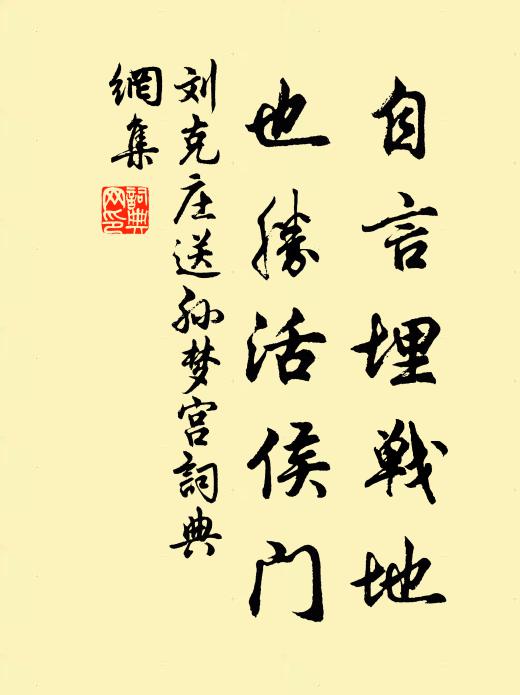 自言埋戦地
也勝活侯门
刘克庄送孙梦宫詞典
網集
詞典網印